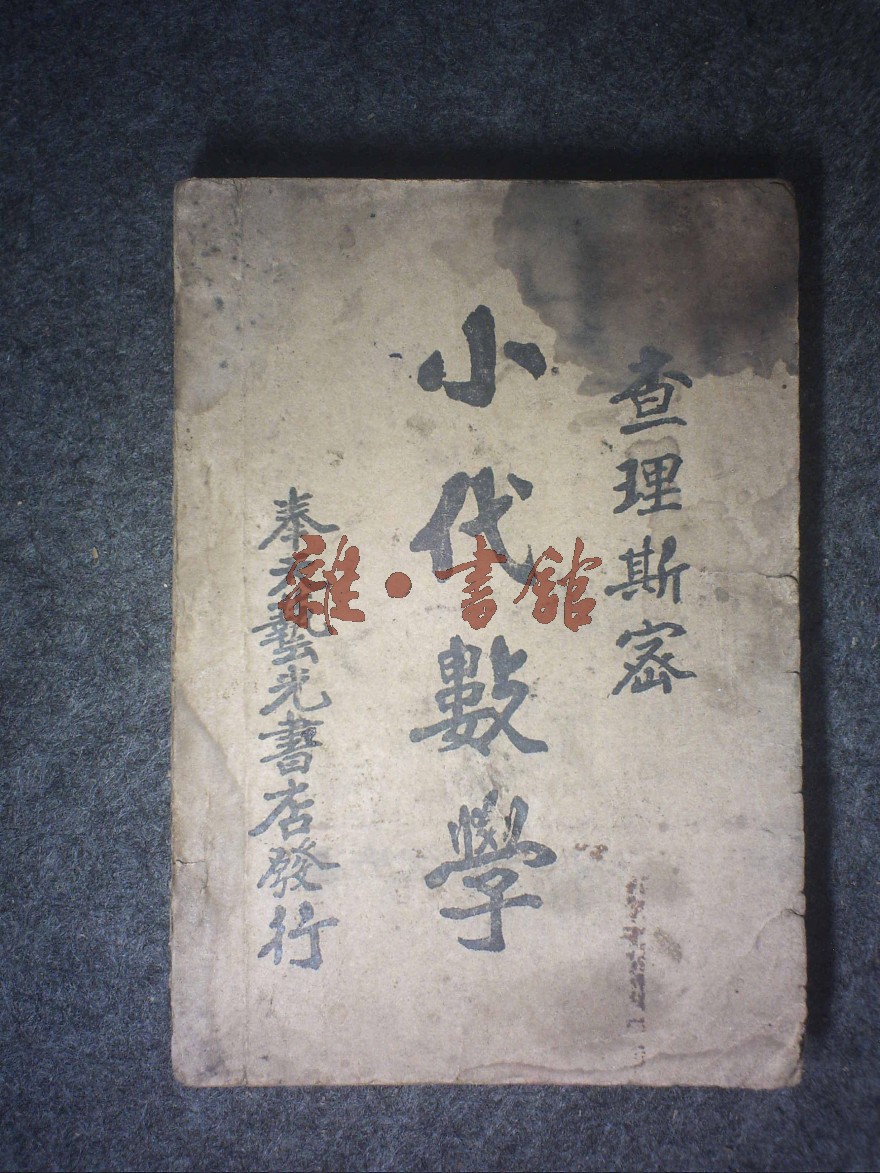 查理斯密
小代數學
奉天藝光書店發行
雜·書館